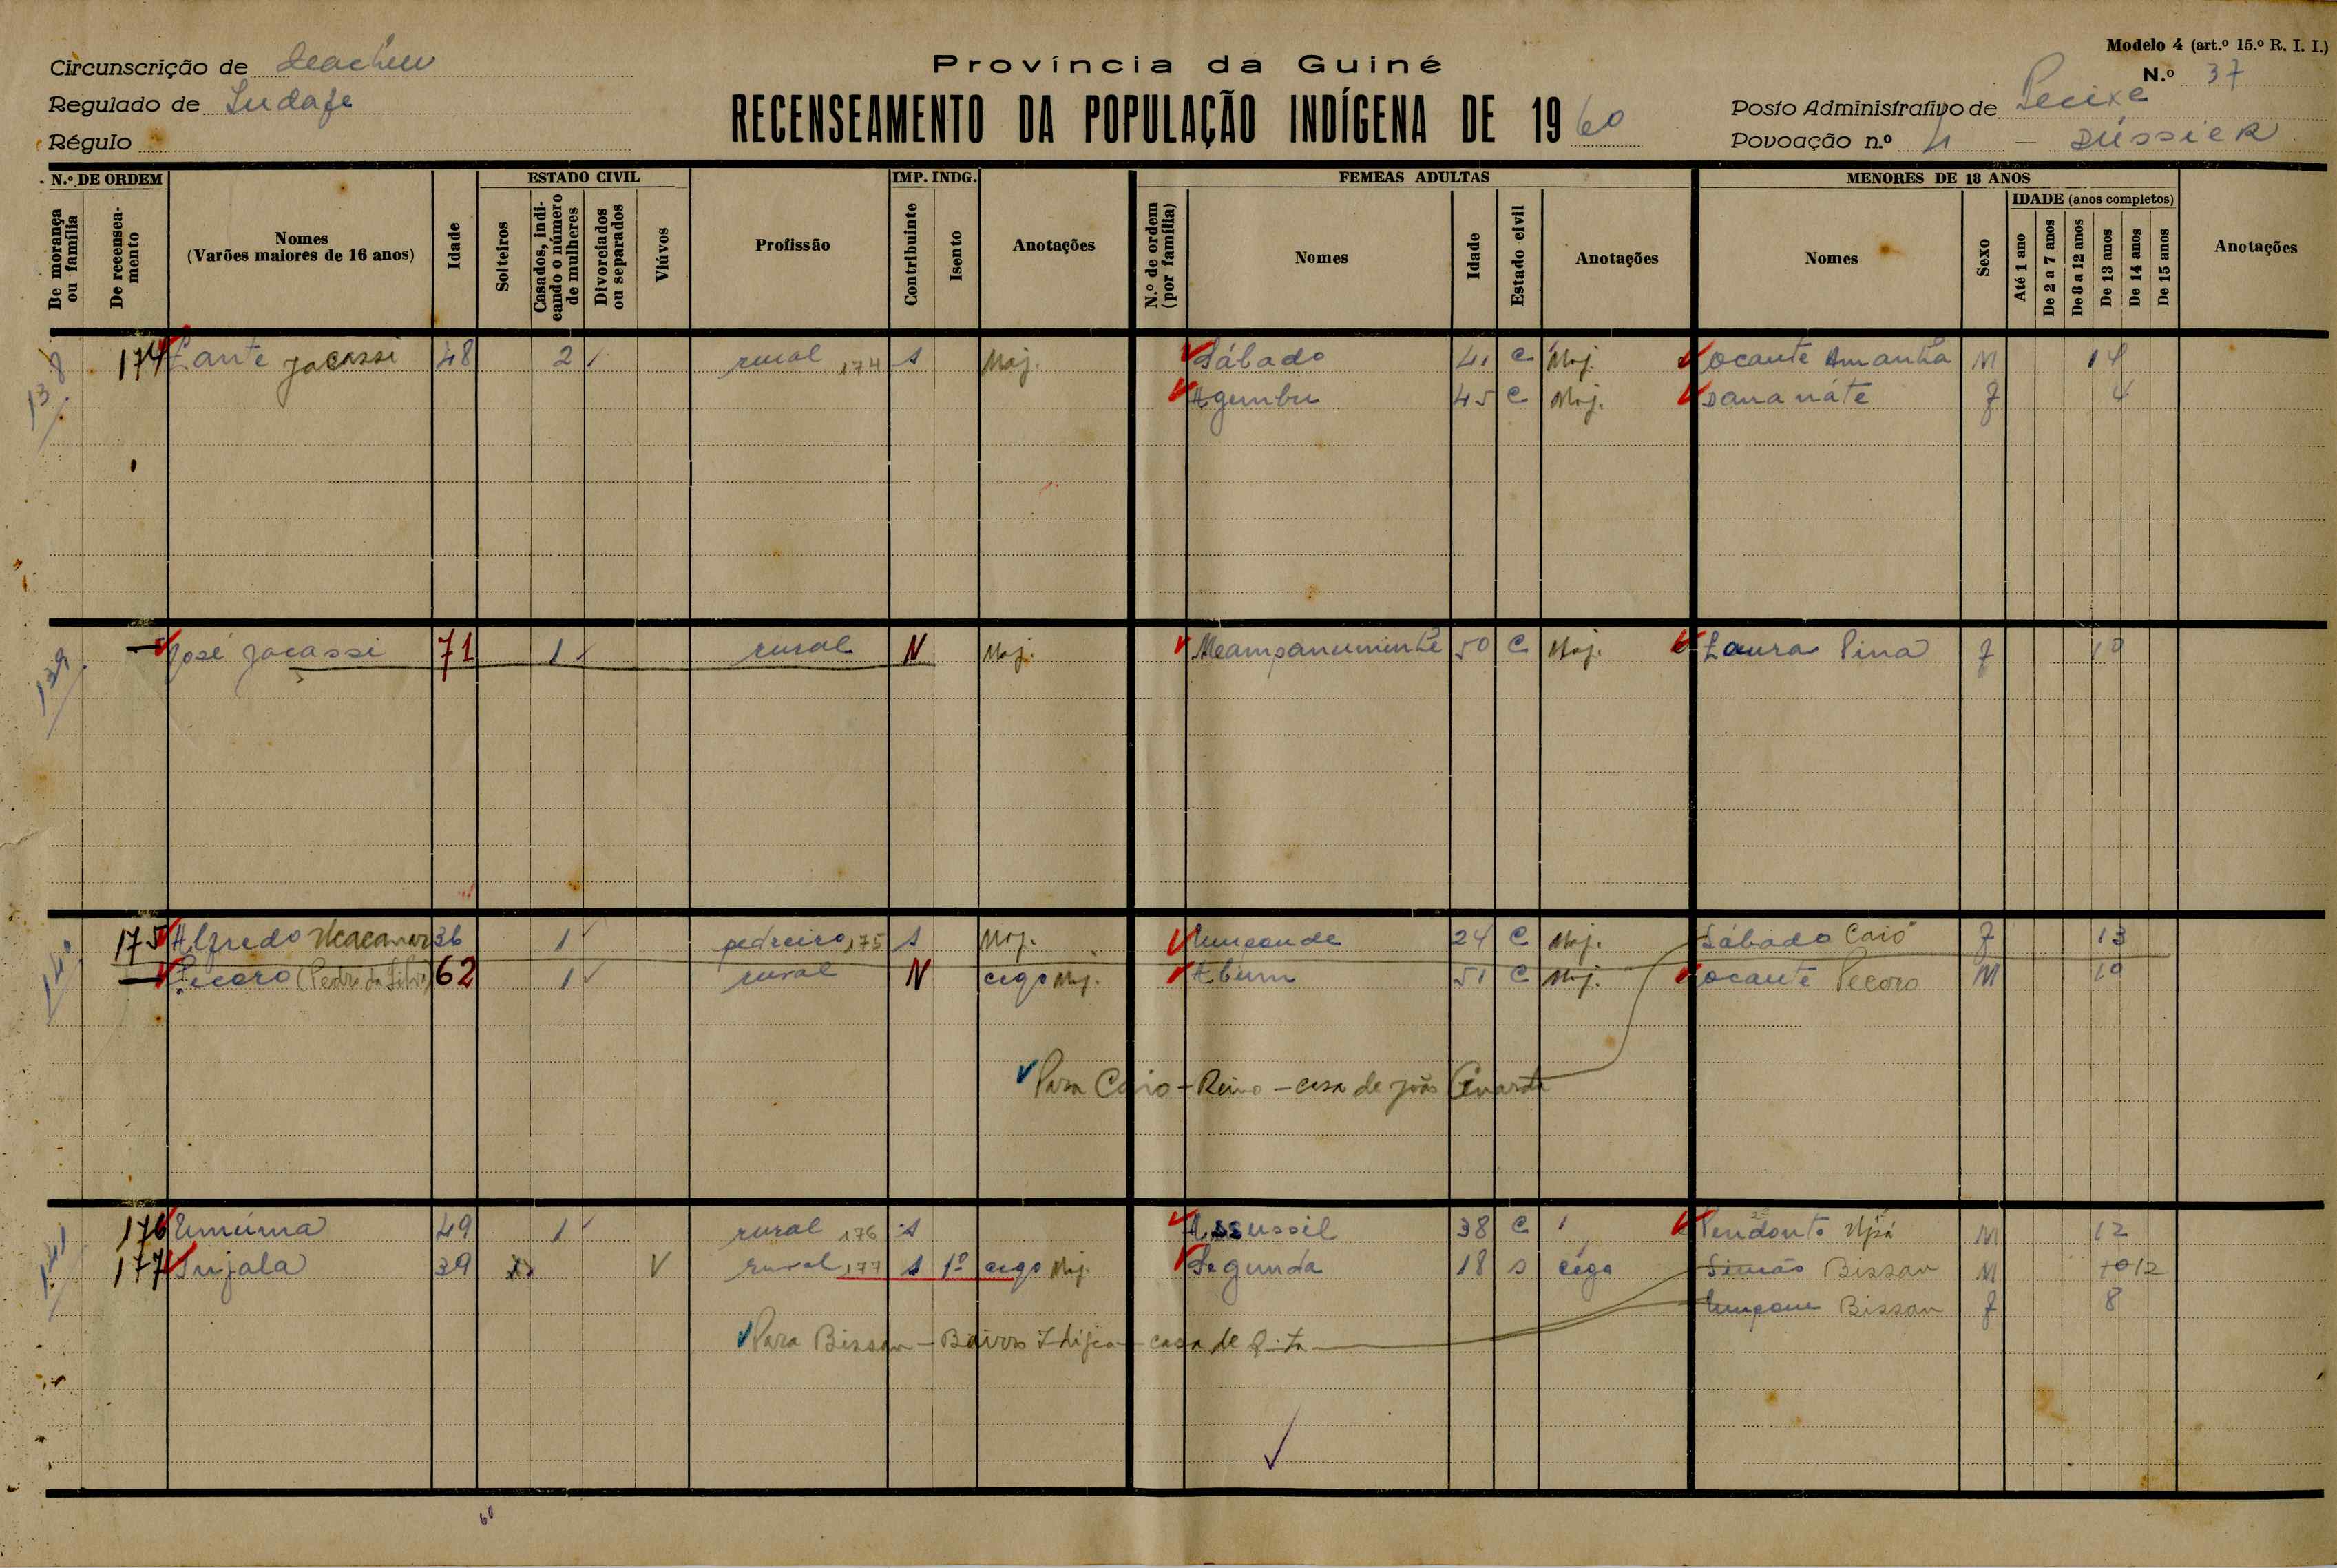 Modelo 4 (art.º 15.º R. I. I.)
Circunscrição de Cacheu
Província da Guiné
N.º 37
Regulado de
RECENSEAMENTO DA POPULAÇÃO INDÍGENA DE 1960
Posto Administrativo de Pecixe
Régulo
Povoação n.º 4 –
N.º DE ORDEM
ESTADO CIVIL
IMP. INDG.
FEMEAS ADULTAS
MENORES DE 18 ANOS
De morança ou família
De recenseamento
Nomes
(Varões maiores de 16 anos)
Idade
Solteiros
Casados, indicando o número de mulheres
Divorciados ou separados
Viúvos
Profissão
Contribuinte
Isento
Anotações
N.º de ordem (por família)
Nomes
Idade
Estado civil
Anotações
Nomes
Sexo
IDADE (anos completos)
Até 1 ano
De 2 a 7 anos
De 8 a 12 anos
De 13 anos
De 14 anos
De 15 anos
Anotações
138 174 Zante Jacassi 48 2 rural 174 s Maj. Sábado 41 C Maj. Ocante Amanha M 14
Agumbu 45 C Maj. Dananáte F 4
139 José Jacassi 71 1 rural N Maj. 50 C Maj. Laura Pina F 10
140 175 Alfredo 36 1 pedreiro 175 s Maj. 24 C Maj. Sábado Caió F 13
Pecoro (Pedro da Silva) 62 1 rural N cego Maj. 51 C Maj. Ocante Pecoro M 10
Para Caio – – casa de João
141 176 Umúma 49 1 rural 176 s Assussil 38 C M 12
177 39 V rural 177 s 1º cego Maj. Segunda 18 S céga Simão Bissau M 12
Bissau F 8
Para Bissau – – casa de
60